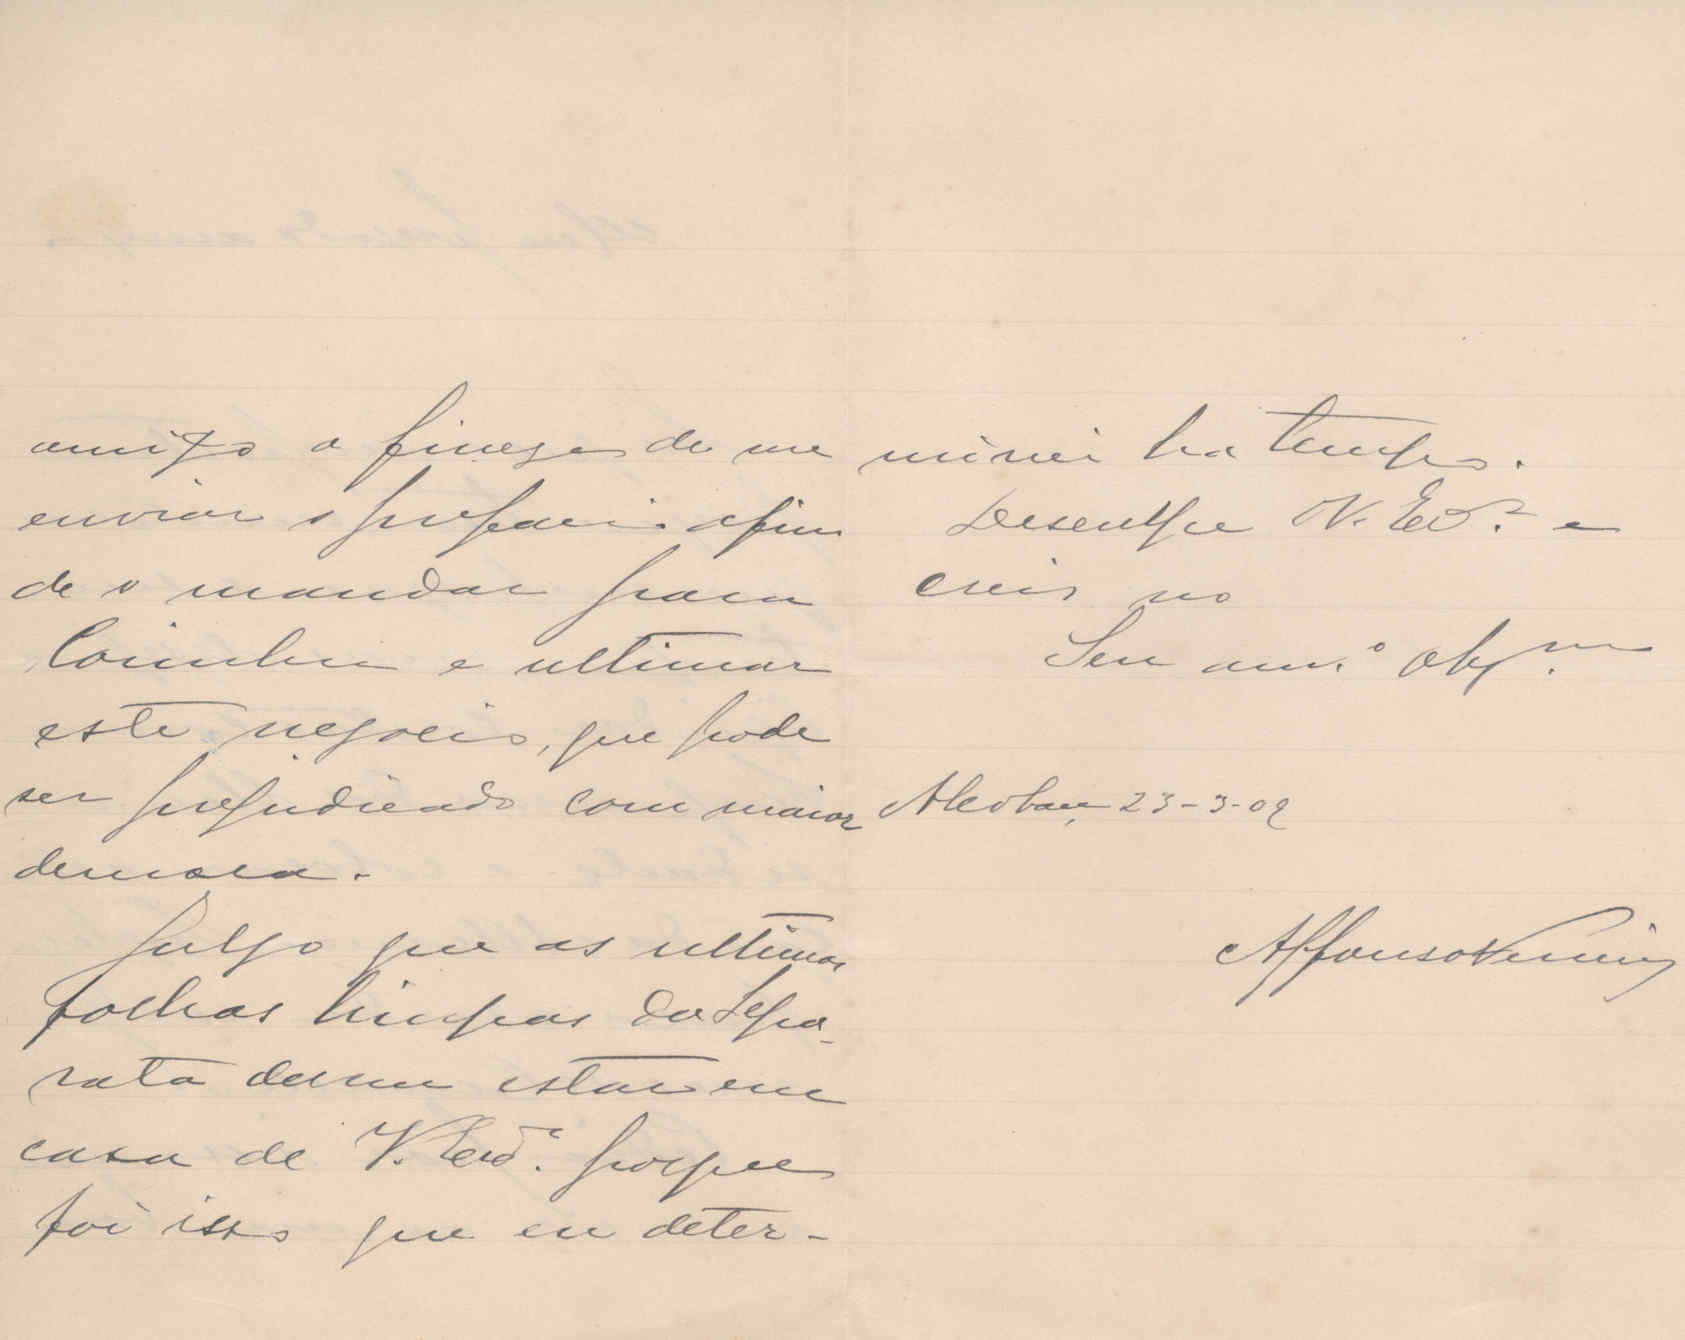 amigo a fineza de me
enviar o prefacio afim
de o mandar para
Coimbra e ultimar
este negocio, que pode
ser prejudicado com maior
demora.
Julgo que as ultimas
folhas limpas da Sepa-
rata devem estar em
casa de V. Exª. porque
foi isso que eu deter-
minei ha tempo.
Desculpe V. Exª. e
creia no
Seu amº. obgm.
Alcobaça, 23-3-09
Affonso